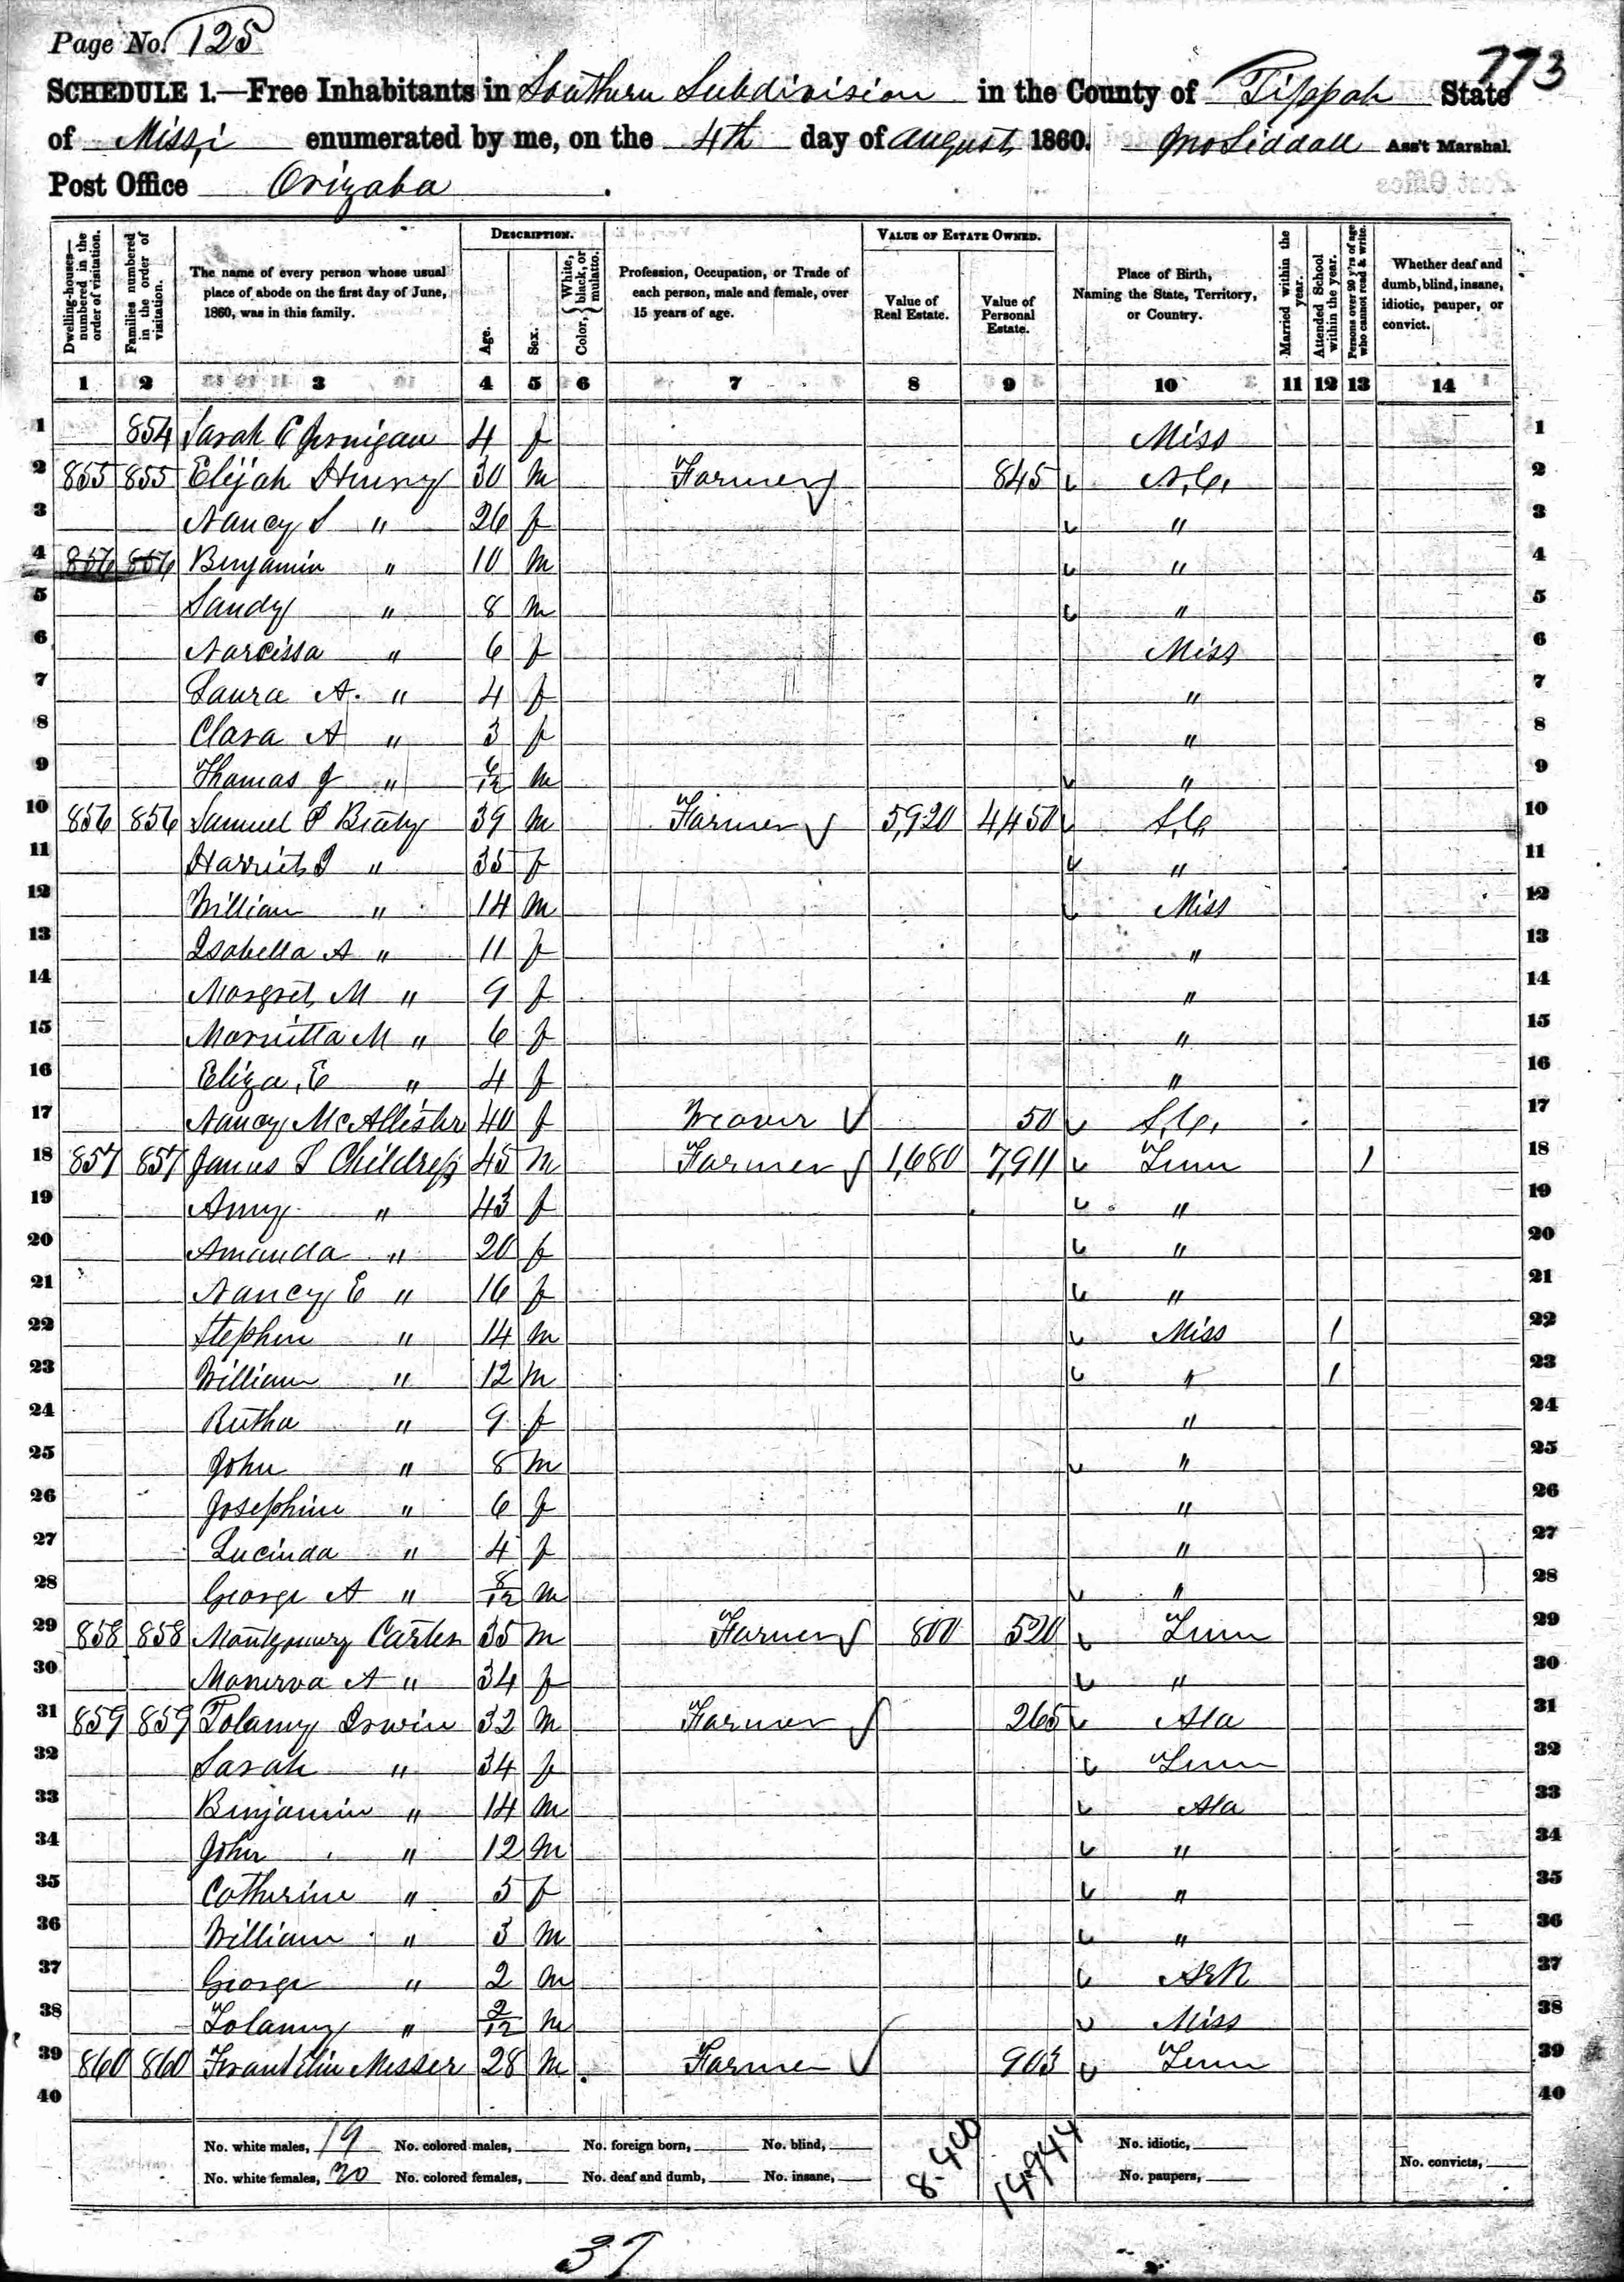 Page No. 125
773
SCHEDULE 1.—Free Inhabitants in Southern Subdivision in the County of Tippah State
of Missi enumerated by me, on the 4th day of August 1860. Jno Siddall Ass't Marshal.
Post Office Orizaba.
DESCRIPTION. VALUE OF ESTATE OWNED.
Dwelling-houses—numbered in the order of visitation. Families numbered in the order of visitation. The name of every person whose usual place of abode on the first day of June, 1860, was in this family. Age. Sex. Color, {White, black, or mulatto. Profession, Occupation, or Trade of each person, male and female, over 15 years of age. Value of Real Estate. Value of Personal Estate. Place of Birth, Naming the State, Territory, or Country. Married within the year. Attended School within the year. Persons over 20 y'rs of age who cannot read & write. Whether deaf and dumb, blind, insane, idiotic, pauper, or convict.
1 2 3 4 5 6 7 8 9 10 11 12 13 14
1 854 Sarah C Jernigan 4 f Miss 1
2 855 855 Elijah Henry 30 m Farmer 845 N.C. 2
3 Nancy S " 26 f " 3
4 856 856 Benjamin " 10 m " 4
5 Sandy " 8 m " 5
6 Narcissa " 6 f Miss 6
7 Laura A. " 4 f " 7
8 Clara A " 3 f " 8
9 Thomas J " 6/12 m " 9
10 856 856 Samuel P Beaty 39 m Farmer 5,920 4,450 S.C. 10
11 Harriet J " 35 f " 11
12 William " 14 m Miss 12
13 Isabella A " 11 f " 13
14 Margret M " 9 f " 14
15 Marietta M " 6 f " 15
16 Eliza, E " 4 f " 16
17 Nancy McAllister 40 f Weaver 50 S.C. 17
18 857 857 James S Childress 45 m Farmer 1,680 7,911 Tenn 1 18
19 Amy " 43 f " 19
20 Amanda " 20 f " 20
21 Nancy E " 16 f " 21
22 Stephen " 14 m Miss 1 22
23 William " 12 m " 1 23
24 Rutha " 9 f " 24
25 John " 8 m " 25
26 Josephine " 6 f " 26
27 Lucinda " 4 f " 27
28 George A " 8/12 m " 28
29 858 858 Montgomery Carter 35 m Farmer 800 520 Tenn 29
30 Manerva A " 34 f " 30
31 859 859 Tolamy Irwin 32 m Farmer 265 Ala 31
32 Sarah " 34 f Tenn 32
33 Benjamin " 14 m Ala 33
34 John " 12 m " 34
35 Catherine " 5 f " 35
36 William " 3 m " 36
37 George " 2 m Ark 37
38 Tolamy " 2/12 m Miss 38
39 860 860 Franklin Messer 28 m Farmer 903 Tenn 39
40 40
No. white males, 19 No. colored males, No. foreign born, No. blind, 8.400 14,944 No. idiotic,
No. white females, 20 No. colored females, No. deaf and dumb, No. insane, No. paupers, No. convicts,
37